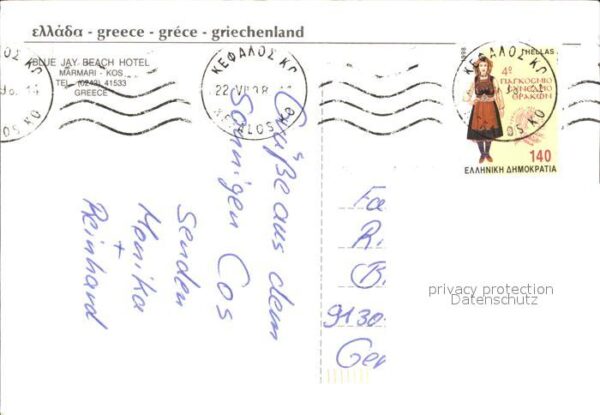 ελλάδα - greece - gréce - griechenland
BLUE JAY BEACH HOTEL
MARMARI - KOS
TEL. (0242) 41533
GREECE
ΚΕΦΑΛΟΣ ΚΩ
22 VII 98
KEFALOS KO
1998
HELLAS
4º
ΠΑΓΚΟΣΜΙΟ
ΣΥΝΕΔΡΙΟ
ΘΡΑΚΩΝ
140
ΕΛΛΗΝΙΚΗ ΔΗΜΟΚΡΑΤΙΑ
Grüße aus dem
Sonnigen Cos
senden
Monika
+
Reinhard
Fa
R.
B.
9130
Ger
privacy protection
Datenschutz